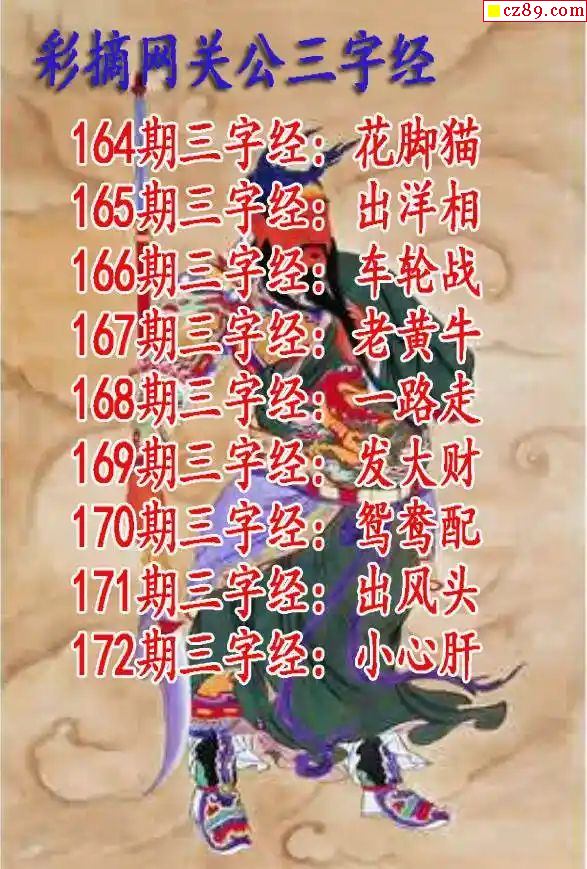 cz89.com
彩摘网关公三字经
164期三字经：花脚猫
165期三字经：出洋相
166期三字经：车轮战
167期三字经：老黄牛
168期三字经：一路走
169期三字经：发大财
170期三字经：鸳鸯配
171期三字经：出风头
172期三字经：小心肝